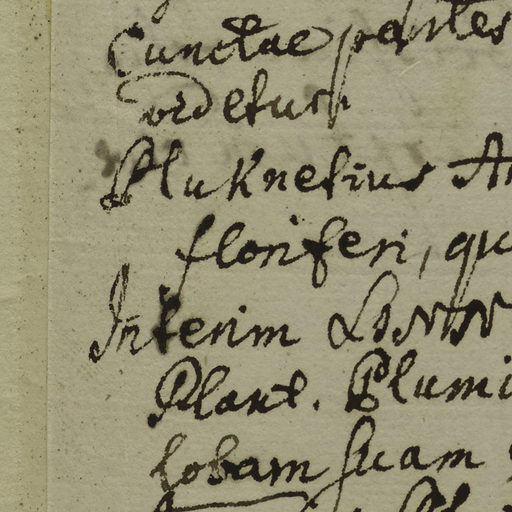 Cunctae partes
videtur
Pluknetius
floriferi, qu
Interim
Plant. Plumi
lobam suam